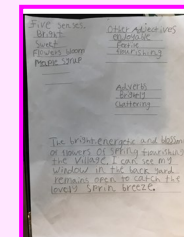 Five senses,
Bright
Sweet
Flowers bloom
Maple syrup
Other Adjectives
enjoyable
festive
flourishing
Adverbs
bravely
chattering
The bright energetic and blossom
of flowers of spring flourishing
the village, I can see my
window in the back yard
remains open to catch the
lovely sprin breeze.